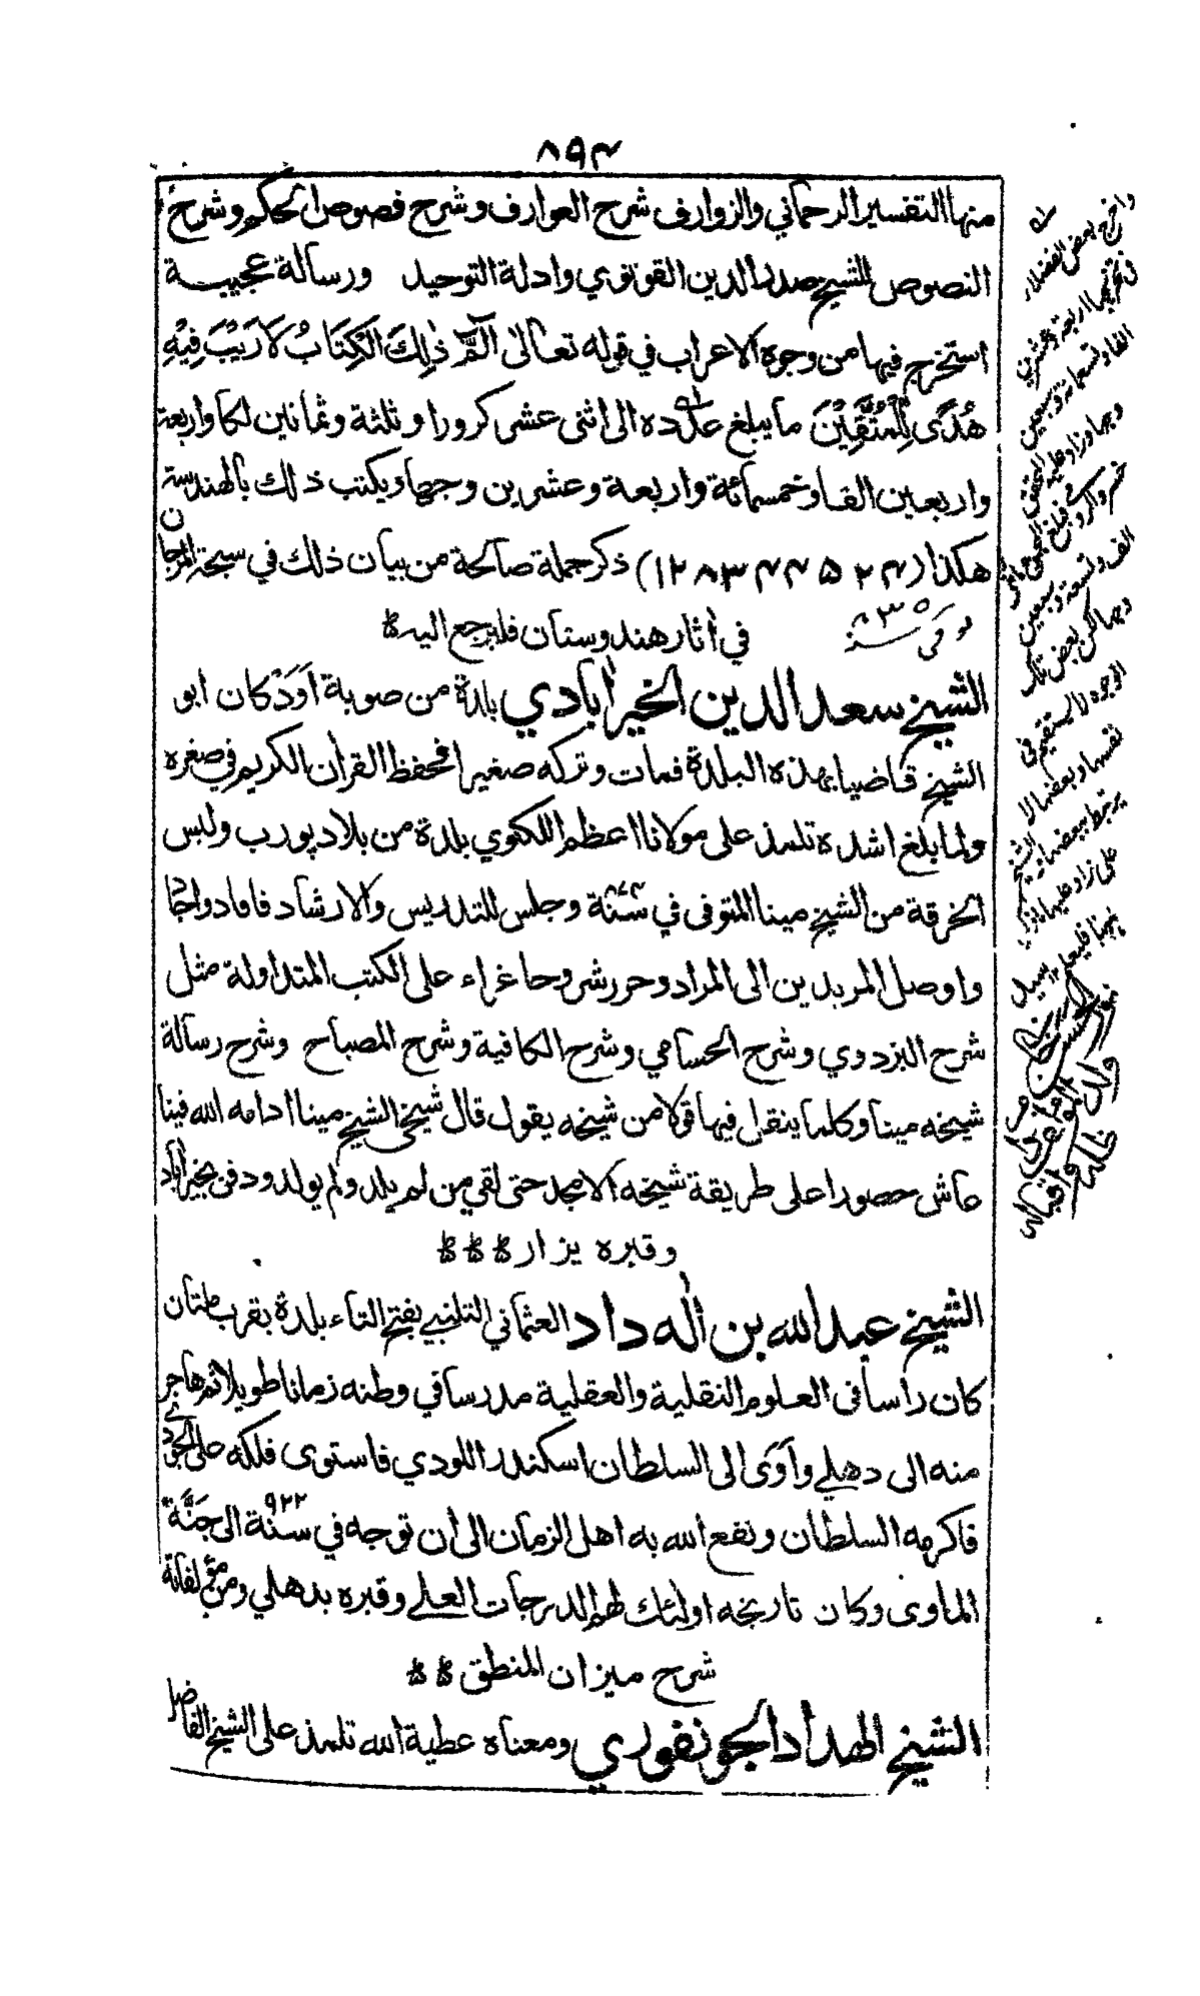 ٨٩٤
منها التفسير الرحماني والزوارف شرح العوارف وشرح فصوص الحكم وشرح
النصوص للشيخ صدر الدين القونوي وادلة التوحيد ورسالة عجيبة
استخرج فيها من وجوه الاعراب في قوله تعالى الٓمّٓ ذٰلِكَ الْكِتَابُ لَا رَيْبَ فِيْهِ
هُدًى لِلْمُتَّقِيْنَ ما يبلغ عدده الى اثنى عشر كرورا وثلثة وثمانين لكا واربعة
واربعين الفا وخمسمائة واربعة وعشرين وجها ويكتب ذلك بالهندسة
هكذا (١٢٨٣٤٤٥٢٤) ذكر جملة صالحة من بيان ذلك في سبحة المرجان
في اثار هندوستان فليرجع اليه
توفي سنة ٨٣٥
الشيخ سعد الدين الخير ابادي بلدة من صوبة اَوَدْ كان ابو
الشيخ قاضيا بهذه البلدة فمات وتركه صغيرا فحفظ القران الكريم في صغره
ولما بلغ اشده تلمذ على مولانا اعظم اللكنوي بلدة من بلاد پورب ولبس
الخرقة من الشيخ مينا المتوفى في سنة ٨٧٤ وجلس للتدريس والارشاد فافاد واجاد
واوصل المريدين الى المراد وحرر شروحا غراء على الكتب المتداولة مثل
شرح البزدوي وشرح الحسامي وشرح الكافية وشرح المصباح وشرح رسالة
شيخه مينا وكلما ينقل فيها قولا من شيخه يقول قال شيخي الشيخ مينا ادامه الله فينا
عاش حصورا على طريقة شيخه الامجد حتى لقي من لم يلد ولم يولد ودفن بخير اباد
وقبره يزار
الشيخ عبد الله بن اله داد العثماني التلنبي بفتح التاء بلدة بقرب ملتان
كان رأسا في العلوم النقلية والعقلية مدرسا في وطنه زمانا طويلا ثم هاجر
منه الى دهلي وآوى الى السلطان اسكندر اللودي فاستوى فلكه على الجودي
فاكرمه السلطان ونفع الله به اهل الزمان الى ان توجه في سنة ٩٢٢ الى جَنَّة
الماوى وكان تاريخه اولئك لهم الدرجات العلے وقبره بدهلي ومن مؤلفاته
شرح ميزان المنطق
الشيخ الهداد الجونفوري ومعناه عطية الله تلمذ على الشيخ الفاضل
واخرج بعض الفضلاء
في تخريجها اربعة وعشرين
الفا وتسعمائة وسبعين
وجها وزاد عليه المحقق
الف وتسعة وسبعين
وجها لكن بعض تلك
الوجوه لا يستقيم في
نفسها وبعضها لا
يرتبط ببعضها